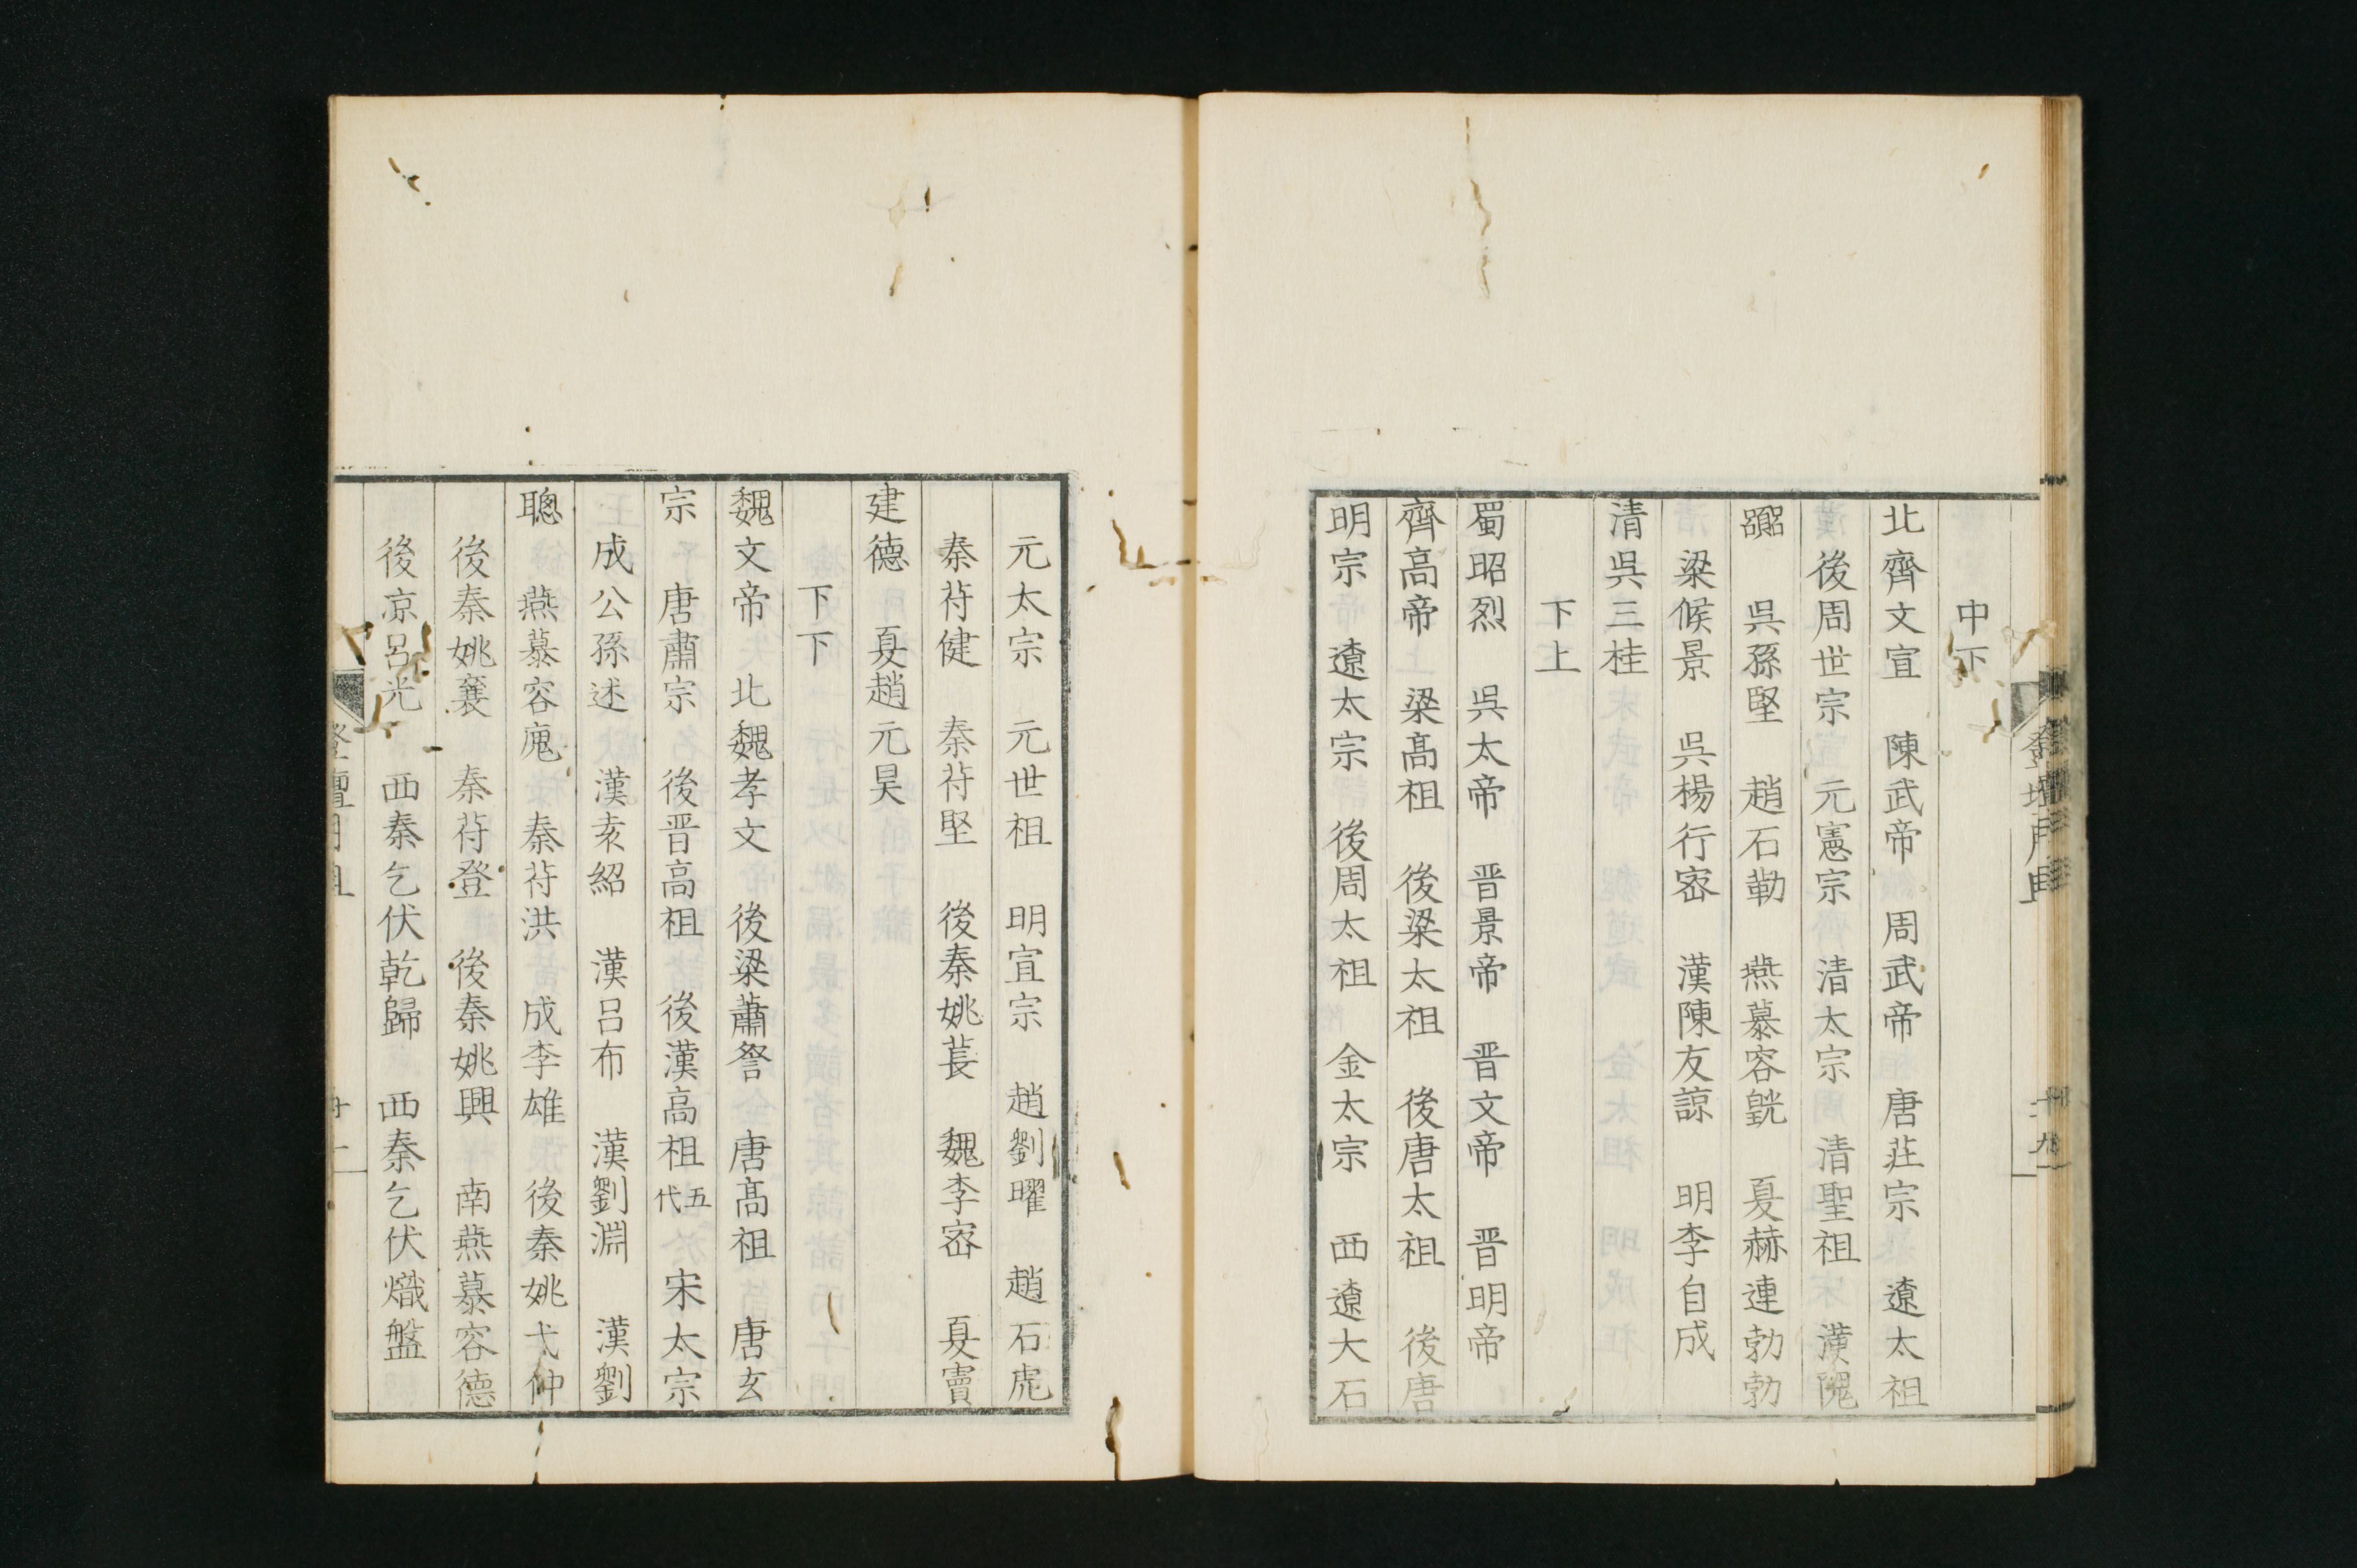 中下
北齊文宣　陳武帝　周武帝　唐莊宗　遼太祖
後周世宗　元憲宗　清太宗　清聖祖　漢隗
囂　吳孫堅　趙石勒　燕慕容皝　夏赫連勃勃
梁候景　吳楊行宻　漢陳友諒　明李自成
清吳三桂
下上
蜀昭烈　吳太帝　晋景帝　晋文帝　晋明帝
齊高帝　梁髙祖　後梁太祖　後唐太祖　後唐
明宗　遼太宗　後周太祖　金太宗　西遼大石
元太宗　元世祖　明宣宗　趙劉曜　趙石虎
秦苻健　秦苻堅　後秦姚萇　魏李宻　夏竇
建德　夏趙元昊
下下
魏文帝　北魏孝文　後梁蕭詧　唐髙祖　唐玄
宗　唐肅宗　後晋高祖　後漢高祖五代　宋太宗
成公孫述　漢袁紹　漢呂布　漢劉淵　漢劉
聰　燕慕容廆　秦苻洪　成李雄　後秦姚弋仲
後秦姚襄　秦苻登　後秦姚興　南燕慕容德
後凉呂光　西秦乞伏乾歸　西秦乞伏熾盤